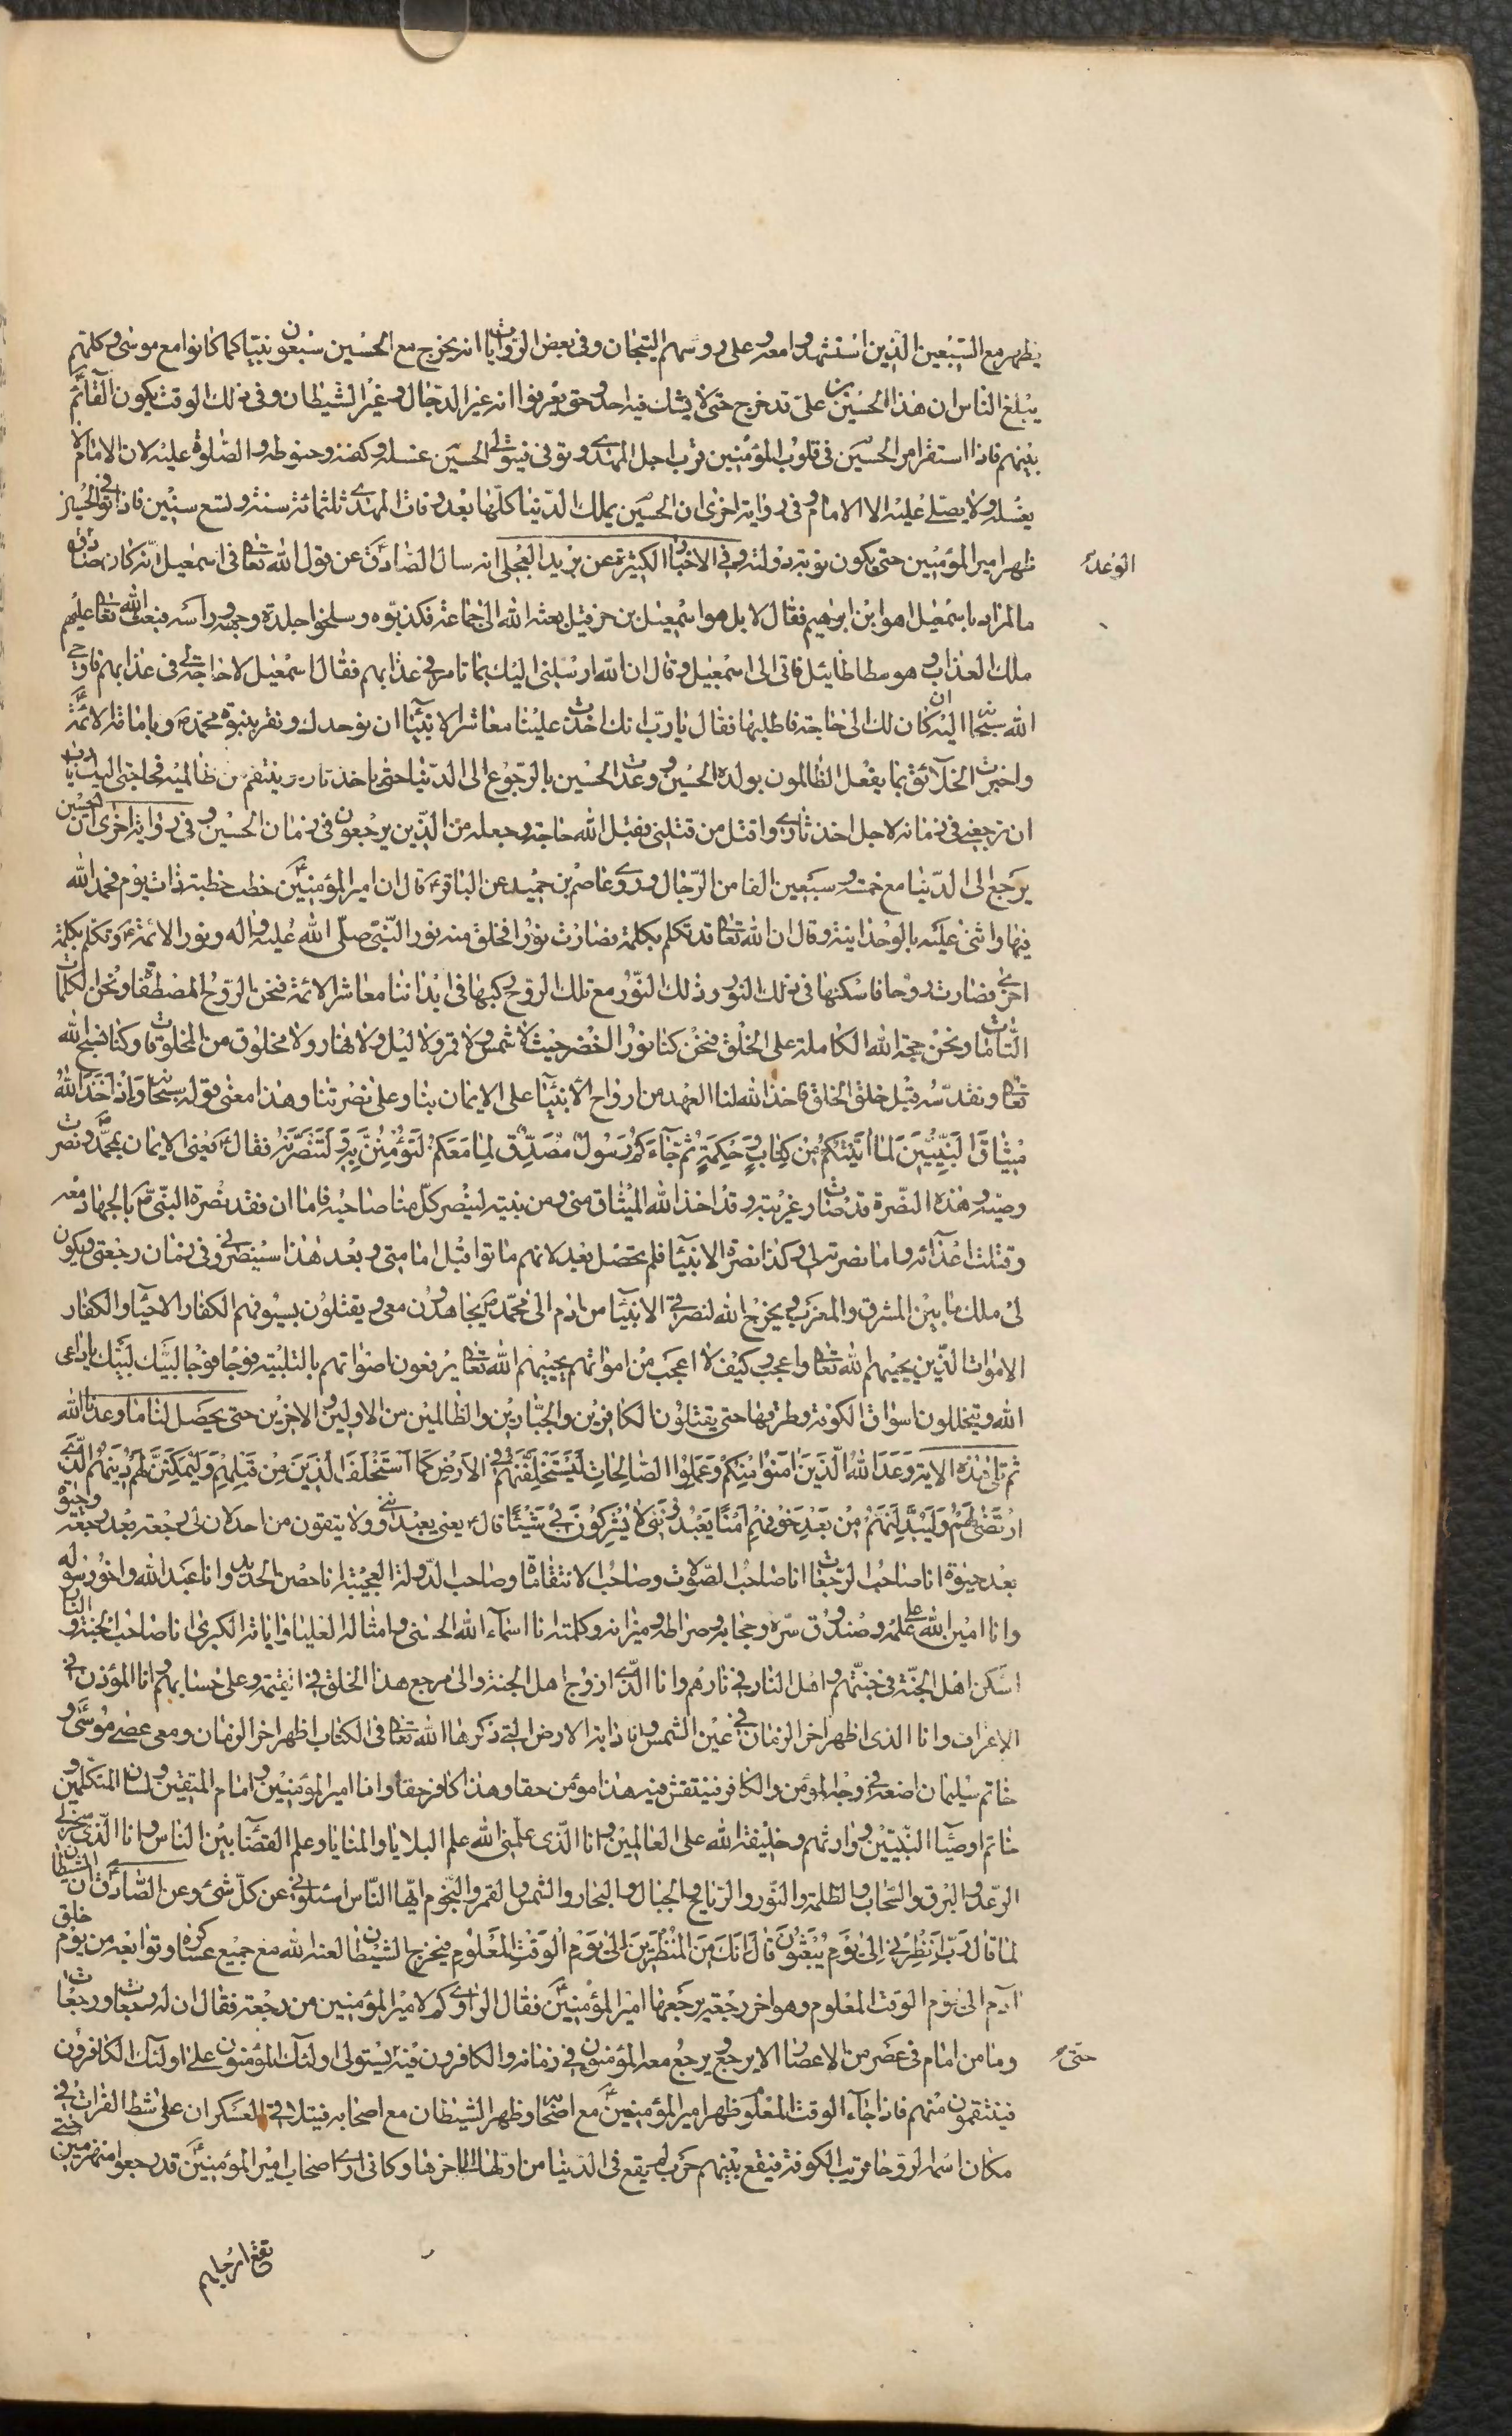 يظهر مع السبعين الذين استشهدوا معه وعلى رؤسهم التيجان وفى بعض الروايات انه يخرج مع الحسين سبعون نبيا كما كانوا مع موسى وكلهم
يبلغ الناس ان هذا الحسين بن على قد خرج حتى لا يشك فيه احد وحتى يعرفوا انه غير الدجال وغير الشيطان وفى ذلك الوقت يكون القائم
بينهم فاذا استقر امر الحسين فى قلوب المؤمنين قرب اجل المهدى وتوفى فيتولى الحسين غسله وكفنه وحنوطه والصلوة عليه لان الامام لا
يغسله ولا يصلى عليه الا الامام وفى رواية اخرى ان الحسين يملك الدنيا كلها بعد وفات المهدى ثلثمائة سنة وتسع سنين فاذا توفى الحسين
ظهر امير المؤمنين حتى يكون نوبة دولته وفى الاخبار الكثيرة عن بريد العجلى انه سال الصادق عن قول الله تعالى فى اسمعيل انه كان صادق
الوعد
ما المراد باسمعيل اهو ابن ابرهيم فقال لا بل هو اسمعيل بن حزقيل بعثه الله الى جماعة فكذبوه وسلخوا جلدة وجهه وراسه فبعث الله تعالى عليهم
ملك العذاب وهو سطاطائيل فاتى الى اسمعيل وقال ان الله ارسلنى اليك بما تامر فى عذابهم فقال اسمعيل لا حاجة لى فى عذابهم فاوحى
الله سبحانه اليه ان كان لك الى حاجة فاطلبها فقال يا رب انك اخذت علينا معاشر الانبيا ان نوحدك ونقر بنبوة محمد ص وبامامة الائمة
واخبرت الخلائق بما يفعل الظالمون بولده الحسين ووعدت الحسين بالرجوع الى الدنيا حتى ياخذ ثاره وينتقم من ظالميه فحاجتى اليك يا رب
ان ترجعنى فى زمانه لاجل اخذ ثارى واقتل من قتلنى فقبل الله حاجته وجعله من الذين يرجعون فى زمان الحسين وفى رواية اخرى ان الحسين
يرجع الى الدنيا مع خمسة وسبعين الفا من الرجال وروى عاصم بن حميد عن الباقر ع قال ان امير المؤمنين خطب خطبة ذات يوم فحمد الله
فيها واثنى عليه بالوحدانية وقال ان الله تعالى قد تكلم بكلمة فصارت نورا فخلق منه نور النبى صلى الله عليه واله ونور الائمة ع وتكلم بكلمة
اخرى فصارت روحا فاسكنها فى ذلك النور وذلك النور مع تلك الروح ركبها فى ابداننا معاشر الائمة فنحن الروح المصطفاة ونحن الكلمات
التامات ونحن حجة الله الكاملة على الخلق فنحن كنا نور الخضر حيث لا شمس ولا قمر ولا ليل ولا نهار ولا مخلوق من المخلوقات وكنا نسبح الله
تعالى ونقدسه قبل خلق الخلق فاخذ الله لنا العهد من ارواح الانبيآ على الايمان بنا وعلى نصرتنا وهذا معنى قوله سبحانه وَاِذْ اَخَذَ اللّٰهُ
مِيثَاقَ النَّبِيّينَ لَمَا آتَيْتُكُمْ مِنْ كِتَابٍ وَحِكْمَةٍ ثُمَّ جَآءَكُمْ رَسُولٌ مُصَدِّقٌ لِمَا مَعَكُمْ لَتُؤْمِنُنَّ بِهِ وَلَتَنْصُرُنَّهُ فقال ع يعنى الايمان بمحمد ونصرت
وصيه وهذه النصرة قد صارت غريبة وقد اخذ الله الميثاق منى ومن نبيه لينصر كل منا صاحبه فاما انا فقد نصرة النبى ص بالجهاد معه
وقتلت اعدآئه واما نصرته لى وكذا نصرة الانبيآ فلم تحصل بعد لانهم ماتوا قبل امامتى وبعد هذا سينصرنى وفى زمان رجعتى ويكون
لى ملك ما بين المشرق والمغرب ويخرج الله لنصرتى الانبيآ من ادم الى محمد ص يجاهدون معى ويقتلون بسيوفهم الكفار الاحيآ والكفار
الاموات الذين يحييهم الله تعالى واعجب وكيف لا اعجب من امواتهم يحييهم الله تعالى يرفعون اصواتهم بالتلبية فوجا فوجا لبيك لبيك يا داعى
الله ويتخللون اسواق الكوفة وطرقها حتى يقتلون الكافرين والجبارين والظالمين من الاولين والاخرين حتى يحصل لنا ما وعدنا الله
ثم تلى هذه الاية وَعَدَ اللّٰهُ الَّذِينَ اٰمَنُوا مِنْكُمْ وَعَمِلُوا الصَّالِحَاتِ لَيَسْتَخْلِفَنَّهُمْ فِى الاَرْضِ كَمَا اَسْتَخْلَفَ الَّذِينَ مِنْ قَبْلِهِمْ وَلَيُمَكِّنَنَّ لَهُمْ دِينَهُمُ الَّذِى
ارْتَضَى لَهُمْ وَلَيُبَدِّلَنَّهُمْ مِنْ بَعْدِ خَوْفِهِمْ اَمْنًا يَعْبُدُونَنِى لَا يُشْرِكُونَ بِى شَيْئًا قال ع يعنى يعبدوننى ولا يتقون من احد لان لى رجعة بعد رجعة وحيوة
بعد حيوة انا صاحب الرجعات انا صاحب الصولات وصاحب الانتقامات وصاحب الدولة العجيبة انا حصن الحديد وانا عبد الله واخو رسوله
وانا امين الله على علمه وصندوق سره وحجابه وصراطه وميزانه وكلمته انا اسمآء الله الحسنى وامثاله العليا واياته الكبرى انا صاحب الجنة والنار
اسكن اهل الجنة فى جنتهم واهل النار فى نارهم وانا الذى ازوج اهل الجنة والى مرجع هذا الخلق فى القيمة وعلى حسابهم وانا المؤذن فى
الاعراف وانا الذى اظهر اخر الزمان فى عين الشمس وانا دابة الارض التى ذكرها الله تعالى فى الكتاب اظهر اخر الزمان ومعى عصى موسى و
خاتم سليمان اضعه فى وجه المؤمن والكافر فينتقش فيه هذا مؤمن حقا وهذا كافر حقا وانا امير المؤمنين وامام المتقين ولسان المتكلمين و
خاتم اوصيآ النبيين ووارثهم وخليفة الله على العالمين وانا الذى علمنى الله علم البلايا والمنايا وعلم القضآ بين الناس وانا الذى سخر لى
الرعد والبرق والسحاب والظلمة والنور والرياح والجبال والبحار والشمس والقمر والنجوم ايها الناس اسئلونى عن كل شئ وعن الصادق ان الشيطان
لما قال رَبِّ اَنْظِرْنِى اِلىٰ يَوْمِ يُبْعَثُونَ قَالَ اِنَّكَ مِنَ الْمُنْظَرِينَ اِلىٰ يَوْمِ الْوَقْتِ الْمَعْلُومِ فيخرج الشيطان لعنه الله مع جميع عساكره وتوابعه من يوم خلق
آدم الى يوم الوقت المعلوم وهو اخر رجعة يرجعها امير المؤمنين فقال الراوى كم لامير المؤمنين من رجعة فقال ان له رجعات ورجعات
وما من امام فى عصر من الاعصار الا يرجع ويرجع معه المؤمنون فى زمانه والكافرون فيه يستولى اولئك المؤمنون على اولئك الكافرون
حتى
فينتقمون منهم فاذا جآء الوقت المعلوم ظهر امير المؤمنين مع اصحابه وظهر الشيطان مع اصحابه فيتلاقى العسكران على شط الفرات فى
مكان اسمه الروحا قريب الكوفة فيقع بينهم حرب لم يقع فى الدنيا من اولها الى اخرها وكانى ارى اصحاب امير المؤمنين قد رجعوا منهزمين حتى
تقع ارجلهم